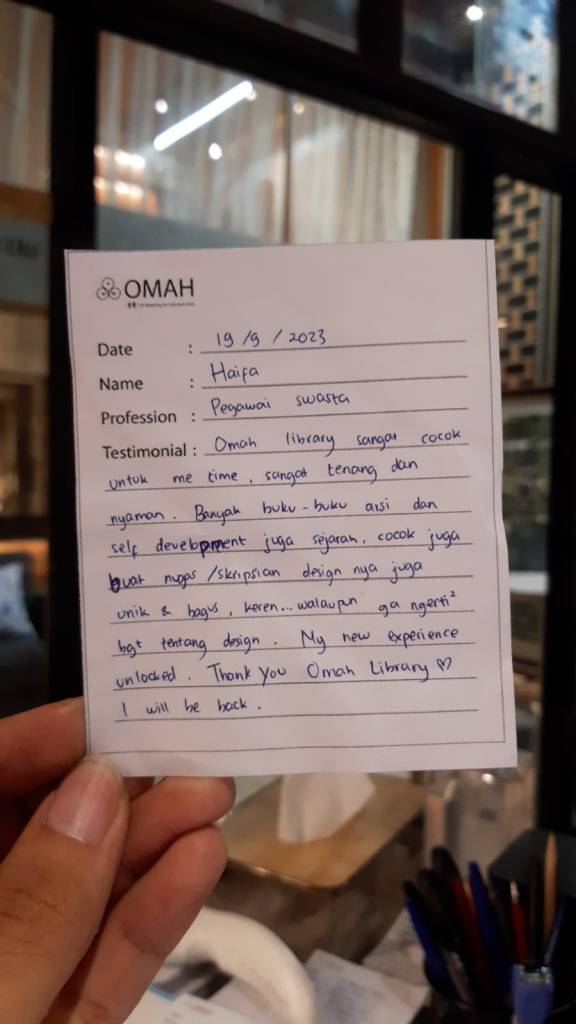 OMAH
Date : 19/9/2023
Name : Haifa
Profession : Pegawai swasta
Testimonial : Omah library sangat cocok
untuk me time, sangat tenang dan
nyaman. Banyak buku-buku arsi dan
self development juga sejarah, cocok juga
buat nugas/skripsian design nya juga
unik & bagus, keren... walaupun ga ngerti²
bgt tentang design. My new experience
unlocked. Thank you Omah Library ♡
I will be back.